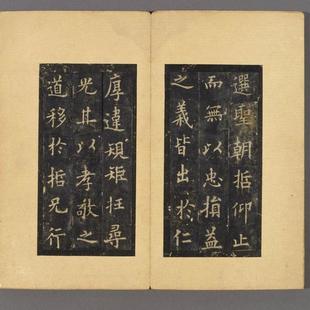 選聖朝哲仰止
而無以忠損益
之義皆出於仁
厚違規矩狂尋
光其以孝敬之
道移於哲兄行